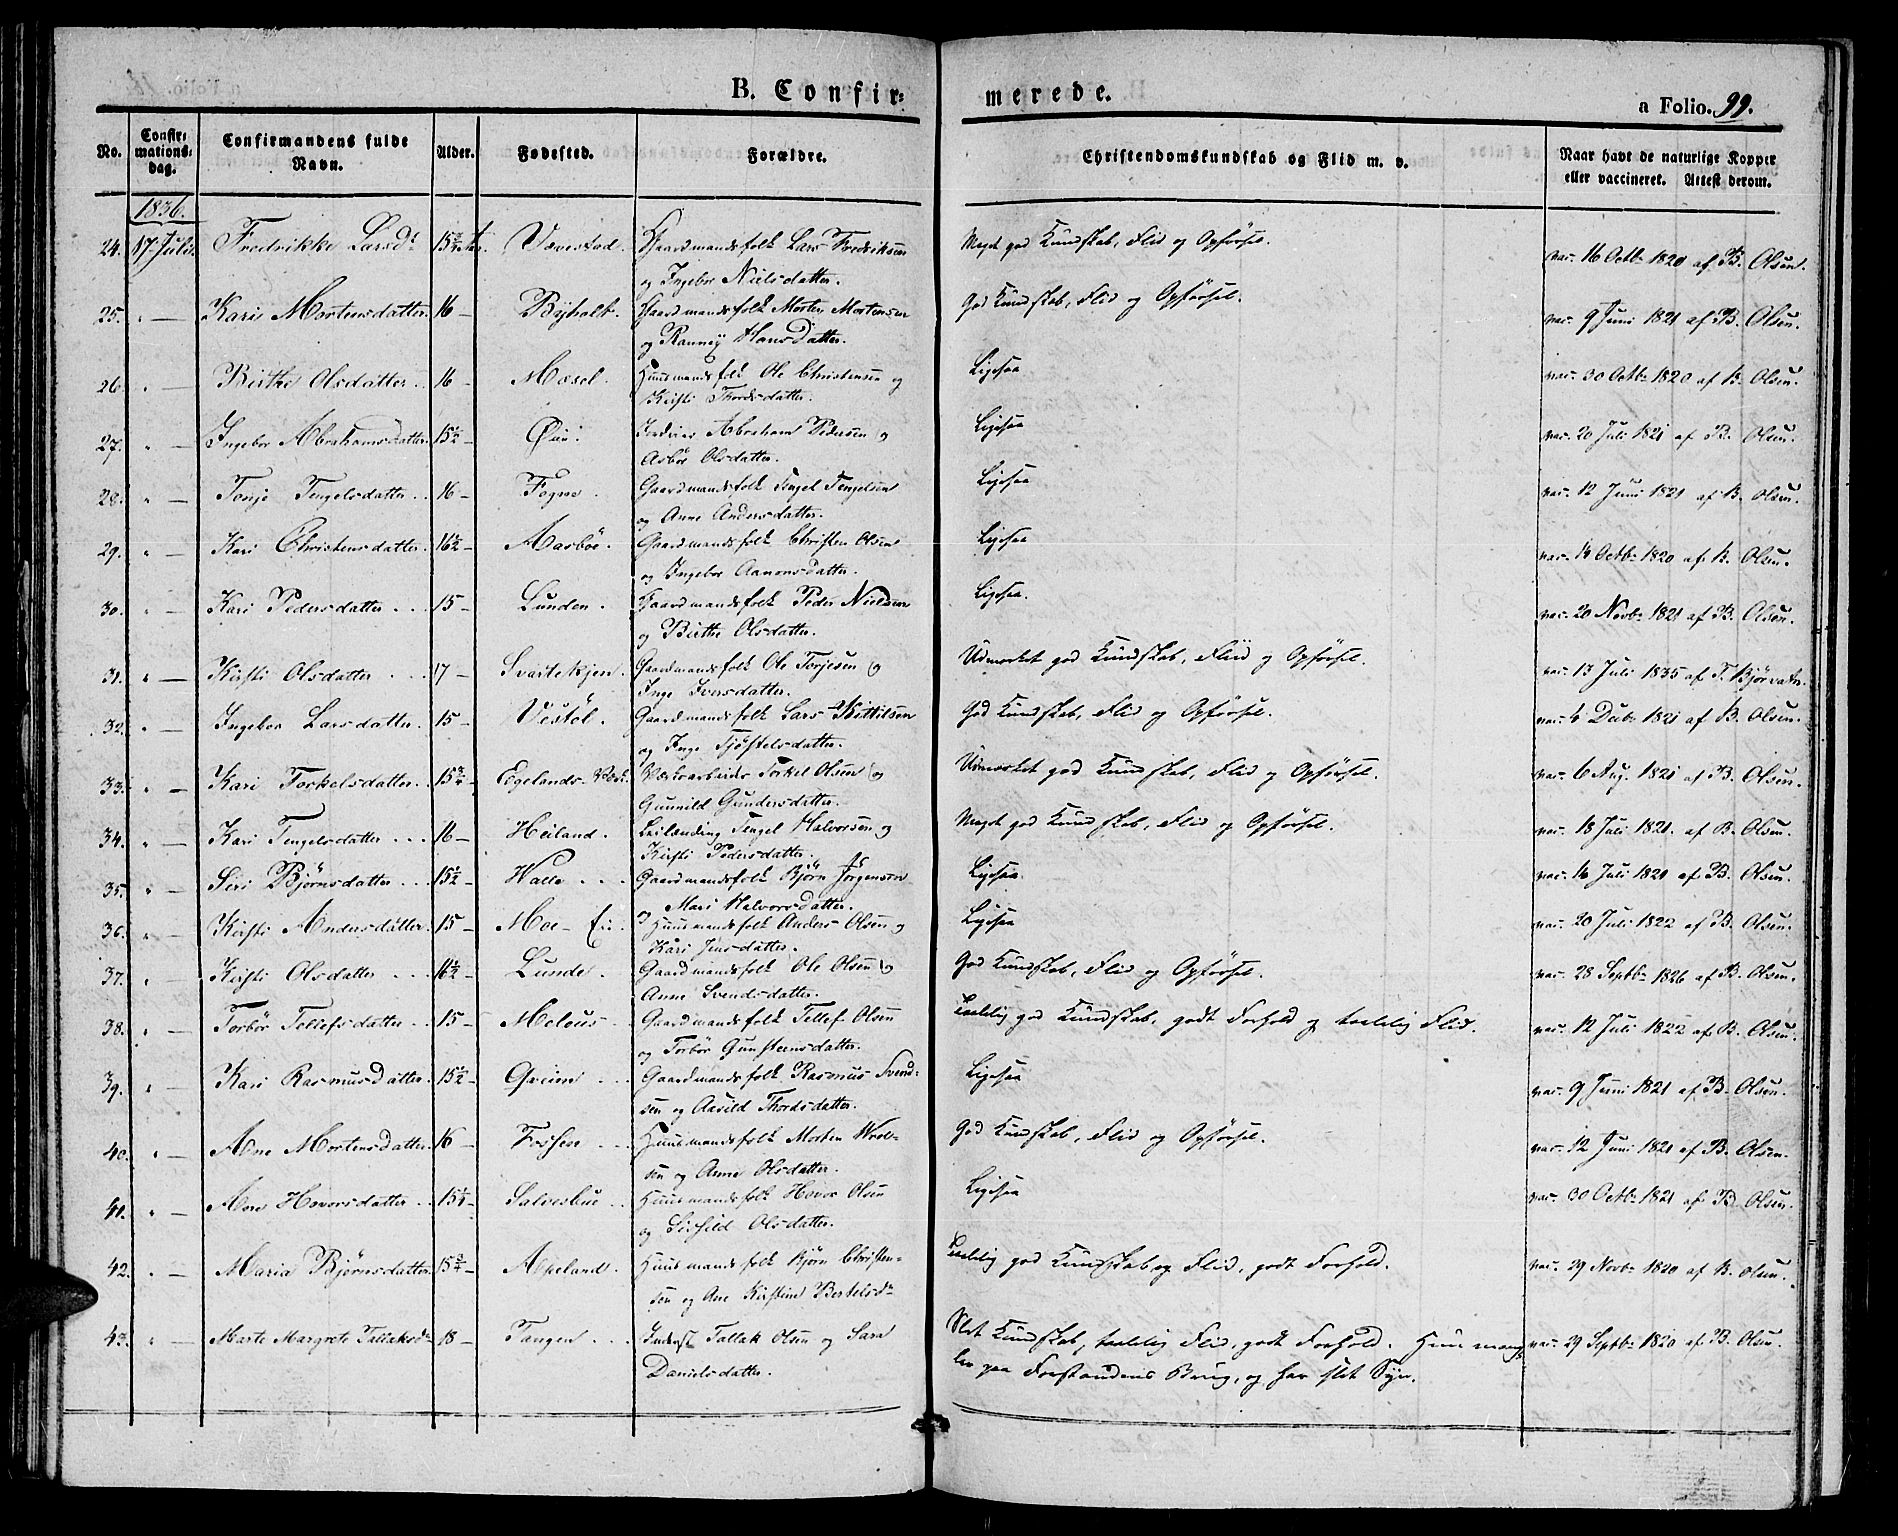 B. Confir=
merede.
a Folio. 99.
No. Confir=mations=dag. Confirmandens fulde Navn. Alder. Fødested. Forældre. Christendomskundskab og Flid m. v. Naar havt de naturlige Kopper eller vaccineret. Attest derom.
1836.
24. 17 Juli. Fredrikke Larsd. 15 3/4 Vævestad. Gaardmandsfolk Lars Fredriksen Meget god Kundskab, Flid og Opførsel. vac. 16 Octb. 1820 af B. Olsen.
og Ingebor Nielsdatter.
25. " — Kari Mortensdatter. 16 – Byholt. Gaardmandsfolk Morten Mortensen God Kundskab, Flid og Opførsel. vac. 9 Juni 1821 af B. Olsen.
og Ranney Hansdatter.
26. " — Birthe Olsdatter. 16 – Mæsel. Huusmandsfolk Ole Christensen og Ligesaa vac. 30 Octb. 1820 af B. Olsen.
Kirsti Thordsdatter.
27. " — Ingebor Abrahamsdatter. 15 1/2 – Inderst Abraham Pedersen og Ligesaa vac. 20 Juli 1821 af B. Olsen.
Asbør Olsdatter.
28. " — Tonje Tengelsdatter. 16 – Fogne. Gaardmandsfolk Tengel Tengelsen Ligesaa vac. 12 Juni 1821 af B. Olsen.
og Anne Andersdatter.
29. " — Kari Christensdatter. 16 1/2 – Aasbøe. Gaardmandsfolk Christen Olsen Ligesaa vac. 14 Octb. 1820 af B. Olsen.
og Ingebor Aanonsdatter.
30. " — Kari Pedersdatter . . . 15 – Lunden. Gaardmandsfolk Peder Nielsen Ligesaa. vac. 20 Novb. 1821 af B. Olsen.
og Birthe Olsdatter.
31. " — Kirsti Olsdatter . . . 17 – Svartekjen. Gaardmandsfolk Ole Torjesen og Udmærket god Kundskab, Flid og Opførsel. vac. 13 Juli 1835 af T. Bjørvatn.
Inge Iversdatter.
32. " — Ingebor Larsdatter. 15 – Vestøl. Gaardmandsfolk Lars Kittilsen God Kundskab, Flid og Opførsel. vac. 4 Decb. 1821 af B. Olsen.
og Inge Tjøstelsdatter.
33. " — Kari Torkelsdatter. 15 3/4 – Egelands-Værk. Værksarbeider Torkel Olsen og Udmærket god Kundskab, Flid og Opførsel. vac. 6 Aug. 1821 af B. Olsen.
Gunnild Gundersdatter.
34. " — Kari Tengelsdatter . . . 16 – Heiland. Leilænding Tengel Halvorsen og Meget god Kundskab, Flid og Opførsel. vac. 18 Juli 1821. af B. Olsen.
Kirsti Pedersdatter.
35. " — Siri Bjørnsdatter . . . 15 1/2 – Halle . . . Gaardmandsfolk Bjørn Jørgensen Ligesaa vac. 16 Juli 1821 af B. Olsen.
og Mari Halvorsdatter.
36. " — Kirsti Andersdatter. 15 – Moe- Ei. Huusmandsfolk Anders Olsen og Ligesaa vac. 20 Juli 1822 af B. Olsen.
Kari Jensdatter.
37. " — Kirsti Olsdatter . . . 16 1/2 – Lunde. Gaardmandsfolk Ole Olsen og God Kundskab, Flid og Opførsel. vac. 28 Septb. 1826 af B. Olsen.
Anne Svendsdatter.
38. " — Torbør Tellefsdatter . . 15 – Meløus. Gaardmandsfolk Tellef Olsen Taalelig god Kundskab, godt Forhold og taalelig Flid. vac. 12 Juli 1822 af B. Olsen.
og Torbør Gunsteensdatter.
39. " — Kari Rasmusdatter. 15 1/2 – Greim . . . Gaardmandsfolk Rasmus Svend- Ligesaa vac. 9 Juni 1821 af B. Olsen.
sen og Aasild Thordsdatter.
40. " — Ane Mortensdatter. 16 – Fossen . . . Huusmandsfolk Morten God Kundskab, Flid og Opførsel. vac. 12 Juni 1821 af B. Olsen.
sen og Anne Olsdatter.
41. " — Ane Hovorsdatter . . 15 1/4 – Salvesbue . . Huusmandsfolk Hovor Olsen Ligesaa vac. 30 Octb. 1821 af B. Olsen.
og Sigild Olsdatter.
42. " — Maria Bjørnsdatter. 15 3/4 – Apeland. Huusmandsfolk Bjørn Christen- Taalelig god Kundskab og Flid, godt Forhold. vac. 29 Novb. 1820 af B. Olsen.
sen og Ane Kirstine Bertelsd.
43. " — Marte Margrete Tallaksd. 18 – Tangen . . . Inderst Tallak Olsen og Sara Slet Kundskab, taalelig Flid, godt Forhold. Hun mang- vac. 29 Septb. 1820 af B. Olsen.
Danielsdatter. ler paa Forstandens Brug, og har slet Syn.